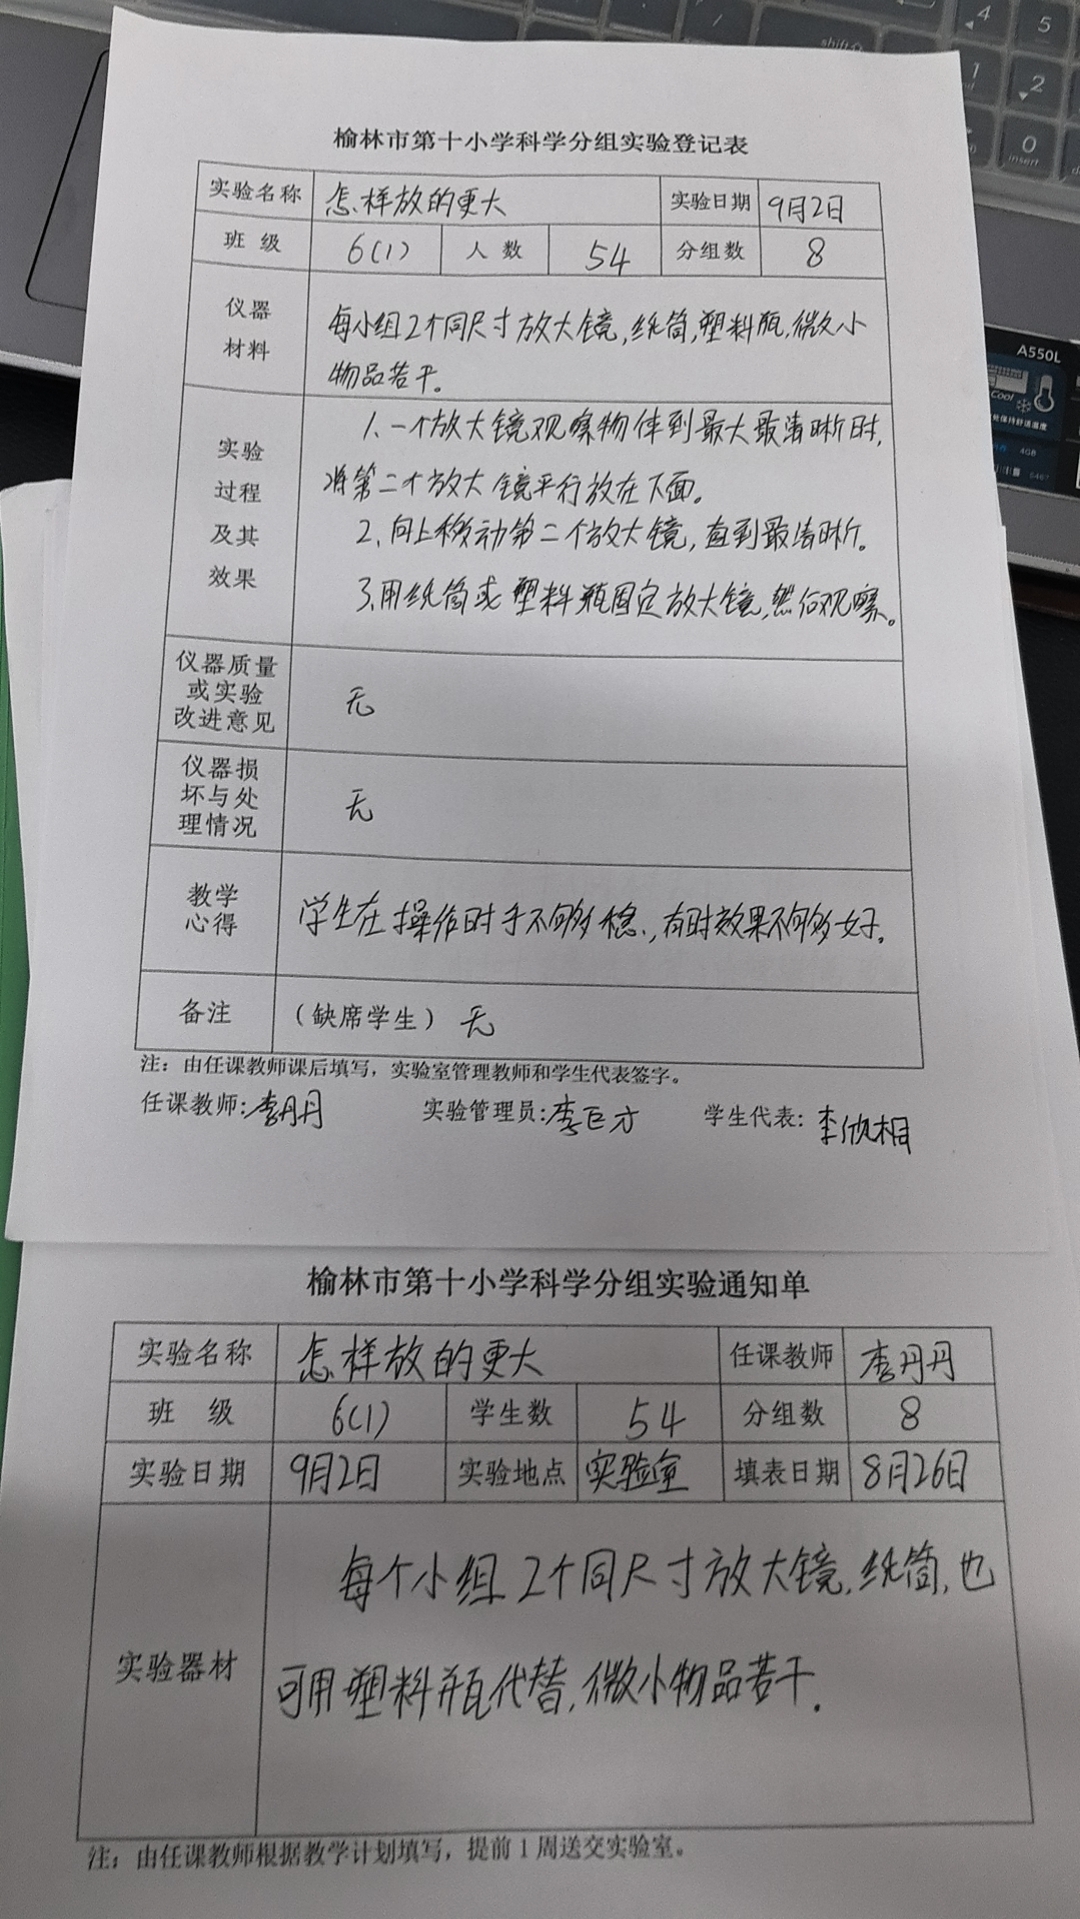 shift
4
5
1
2
0
insert
A550L
Cool
4GB
榆林市第十小学科学分组实验登记表
实验名称 怎样放的更大 实验日期 9月2日
班 级 6(1) 人 数 54 分组数 8
仪器
材料
每小组2个同尺寸放大镜,纸筒,塑料瓶,微小
物品若干。
实验
过程
及其
效果
1、一个放大镜观察物体到最大最清晰时,
将第二个放大镜平行放在下面。
2、向上移动第二个放大镜,直到最清晰。
3、用纸筒或塑料瓶固定放大镜,然后观察。
仪器质量
或实验
改进意见
无
仪器损
坏与处
理情况
无
教学
心得
学生在操作时手不够稳,有时效果不够好.
备注 （缺席学生） 无
注：由任课教师课后填写，实验室管理教师和学生代表签字。
任课教师:李丹丹 实验管理员:李巨才 学生代表: 李欣桐
榆林市第十小学科学分组实验通知单
实验名称 怎样放的更大 任课教师 李丹丹
班 级 6(1) 学生数 54 分组数 8
实验日期 9月2日 实验地点 实验室 填表日期 8月26日
实验器材
每个小组2个同尺寸放大镜,纸筒,也
可用塑料瓶代替,微小物品若干.
注：由任课教师根据教学计划填写，提前1周送交实验室。